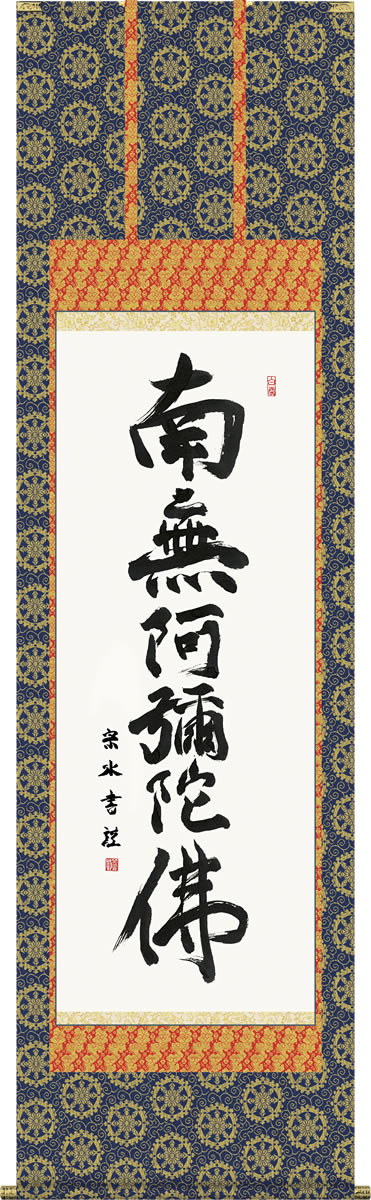 南無阿彌陀佛
宗水書禮